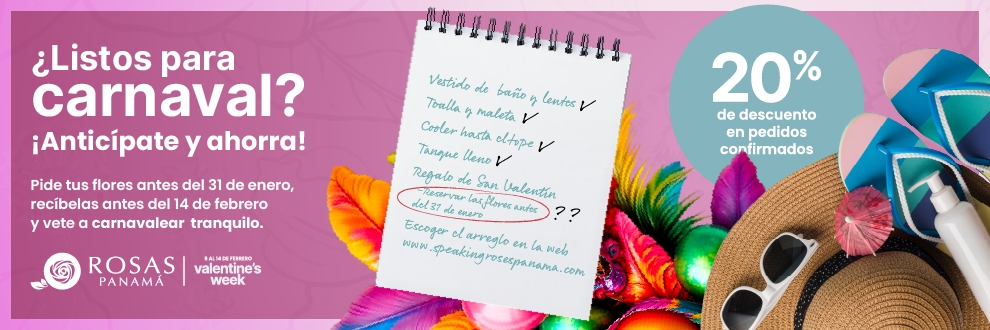 ¿Listos para
carnaval?
¡Anticípate y ahorra!
Pide tus flores antes del 31 de enero,
recíbelas antes del 14 de febrero
y vete a carnavalear tranquilo.
ROSAS
PANAMÁ
8 AL 14 DE FEBRERO
valentine's
week
Vestido de baño y lentes ✓
Toalla y maleta ✓
Cooler hasta el tope ✓
Tanque lleno ✓
Regalo de San Valentín
-Reservar las flores antes
del 31 de enero ??
Escoger el arreglo en la web
www.speakingrosespanama.com
20%
de descuento
en pedidos
confirmados